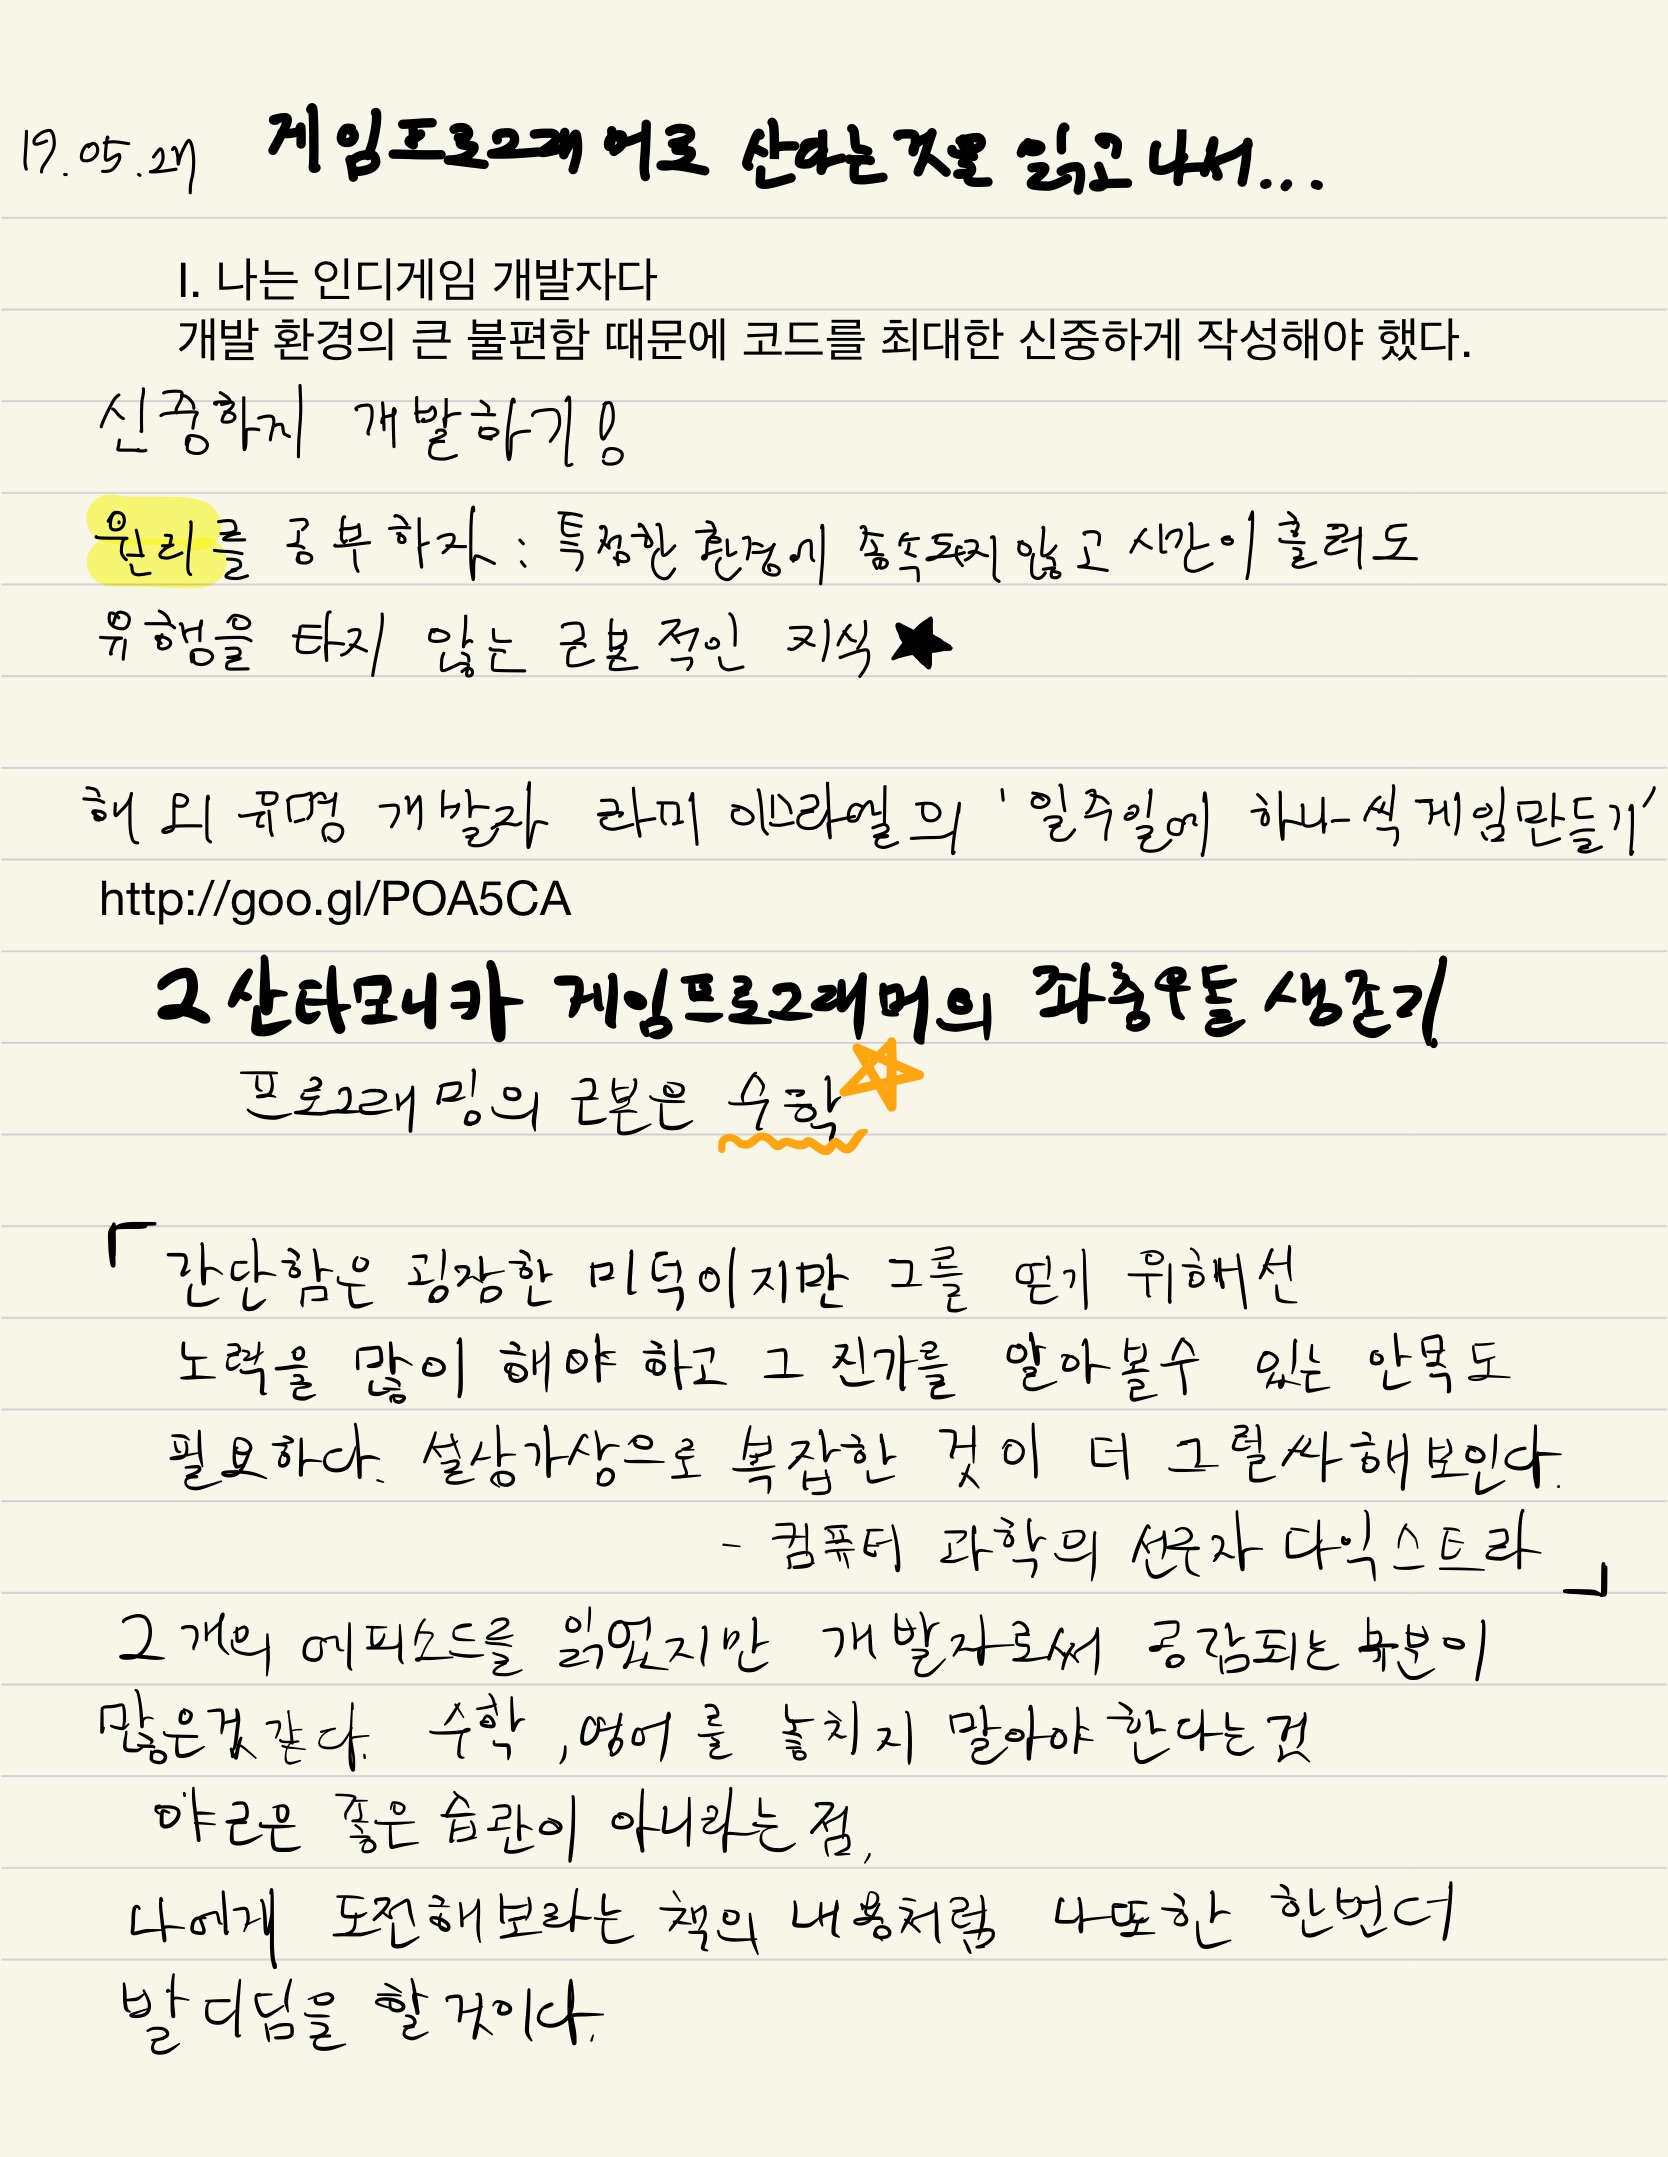 19.05.27 게임프로그래머로 산다는것을 읽고 나서...
I. 나는 인디게임 개발자다
개발 환경의 큰 불편함 때문에 코드를 최대한 신중하게 작성해야 했다.
신중하게 개발하기!
원리를 공부하자 : 특정한 환경에 종속되지 않고 시간이 흘러도
유행을 타지 않는 근본적인 지식★
해외 유명 개발자 라미 이스라엘의 '일주일에 하나씩 게임만들기'
http://goo.gl/POA5CA
2 산타모니카 게임프로그래머의 좌충우돌 생존기.
프로그래밍의 근본은 수학☆
「간단함은 굉장한 미덕이지만 그를 얻기 위해선
노력을 많이 해야 하고 그 진가를 알아볼수 있는 안목도
필요하다. 설상가상으로 복잡한 것이 더 그럴싸해보인다.
- 컴퓨터 과학의 선구자 다익스트라」
2개의 에피소드를 읽었지만 개발자로써 공감되는 부분이
많은것 같다. 수학, 영어를 놓치지 말아야 한다는것
야근은 좋은 습관이 아니라는 점,
나에게 도전해보라는 책의 내용처럼 나또한 한번더
발디딤을 할것이다.